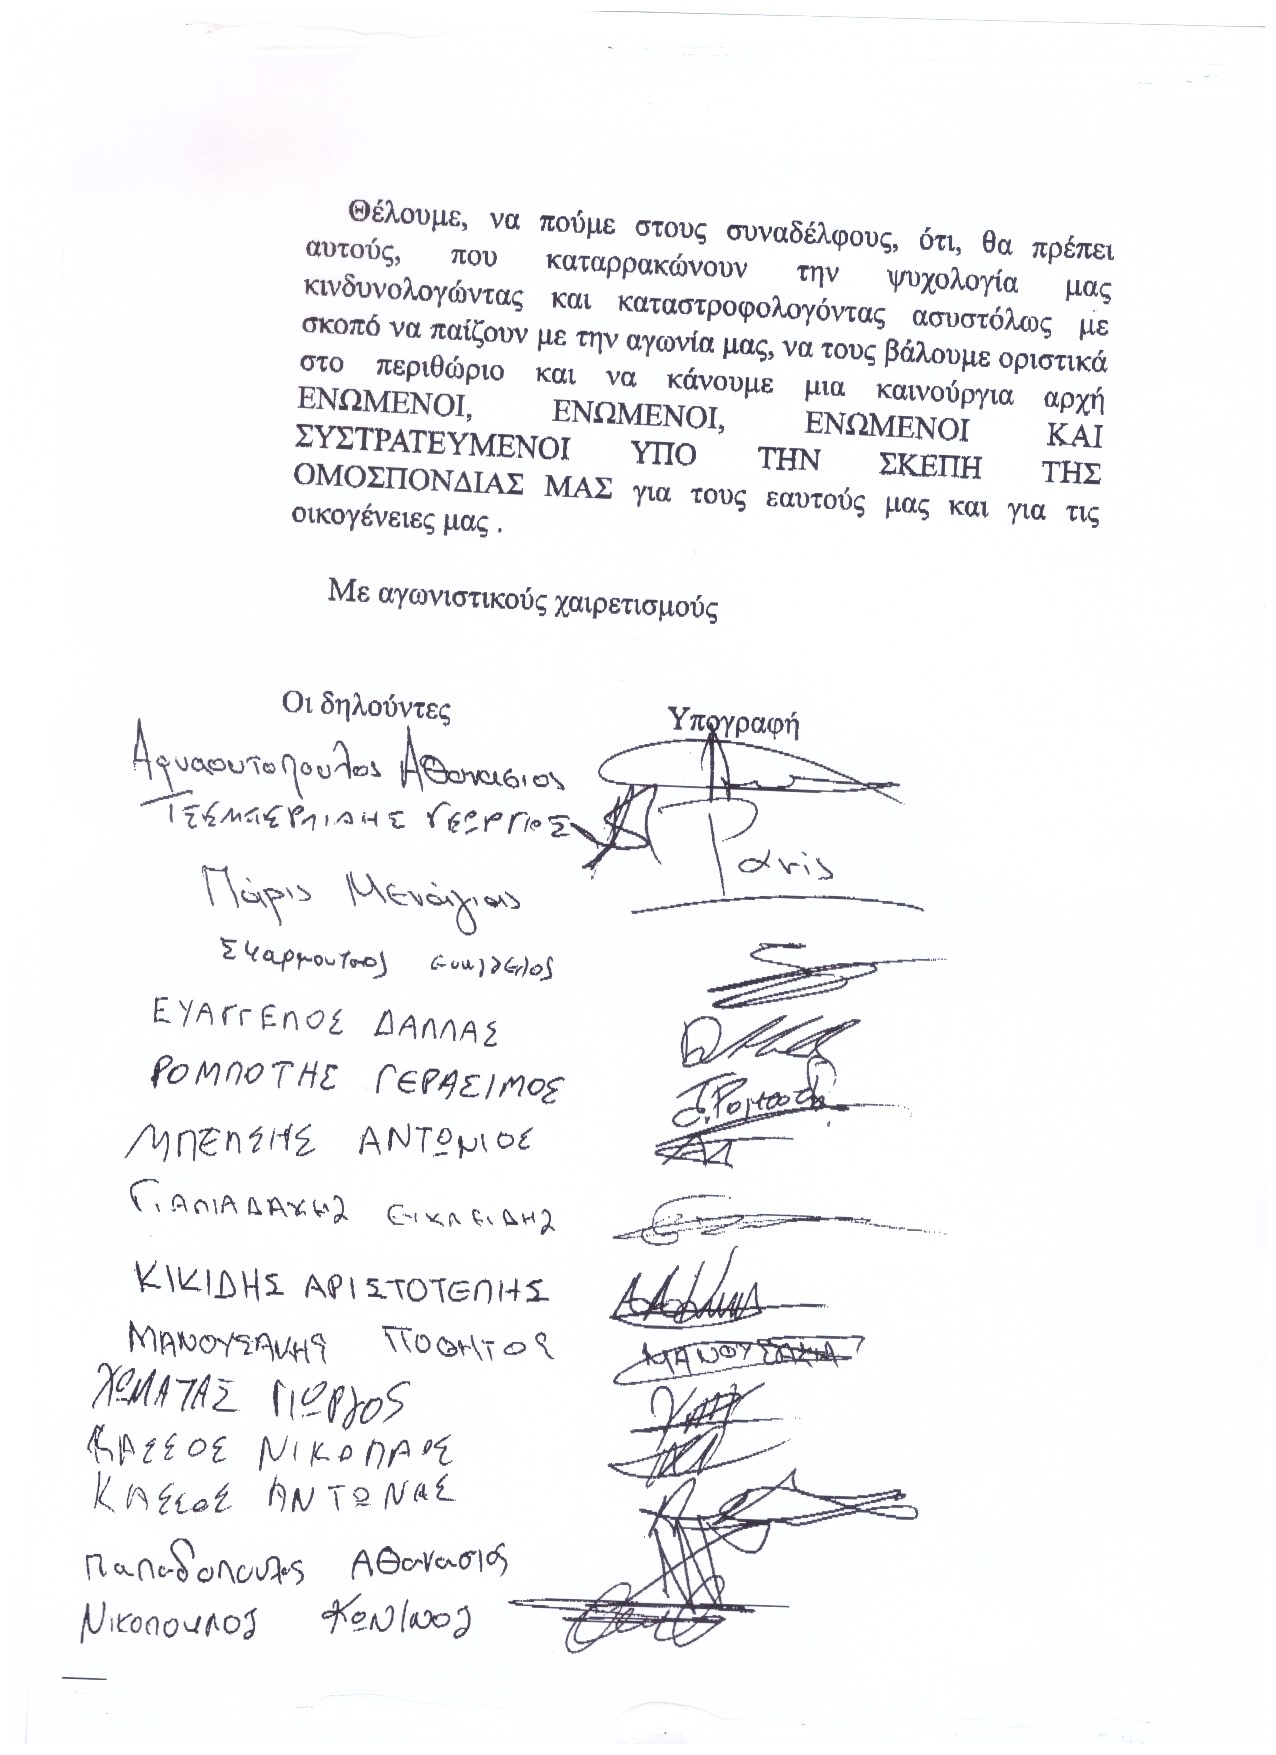 Θέλουμε, να πούμε στους συναδέλφους, ότι, θα πρέπει
αυτούς, που καταρρακώνουν την ψυχολογία μας
κινδυνολογώντας και καταστροφολογόντας ασυστόλως με
σκοπό να παίζουν με την αγωνία μας, να τους βάλουμε οριστικά
στο περιθώριο και να κάνουμε μια καινούργια αρχή
ΕΝΩΜΕΝΟΙ, ΕΝΩΜΕΝΟΙ, ΕΝΩΜΕΝΟΙ ΚΑΙ
ΣΥΣΤΡΑΤΕΥΜΕΝΟΙ ΥΠΟ ΤΗΝ ΣΚΕΠΗ ΤΗΣ
ΟΜΟΣΠΟΝΔΙΑΣ ΜΑΣ για τους εαυτούς μας και για τις
οικογένειες μας .
Με αγωνιστικούς χαιρετισμούς
Οι δηλούντες Υπογραφή
Αθανασιος
ΓΕΩΡΓΙΟΣ
Πάρις Paris
ΕΥΑΓΓΕΛΟΣ ΔΑΛΛΑΣ
ΡΟΜΠΟΤΗΣ ΓΕΡΑΣΙΜΟΣ
ΜΠΕΛΣΗΣ ΑΝΤΩΝΙΟΣ
ΚΙΚΙΔΗΣ ΑΡΙΣΤΟΤΕΛΗΣ
ΜΑΝΟΥΣΑΚΗΣ ΠΟΘΗΤΟΣ
ΧΩΜΑΤΑΣ ΓΙΩΡΓΟΣ
ΝΙΚΟΛΑΟΣ
ΑΝΤΩΝΑΣ
Παπαδόπουλος Αθανασιος
Νικοπουλος